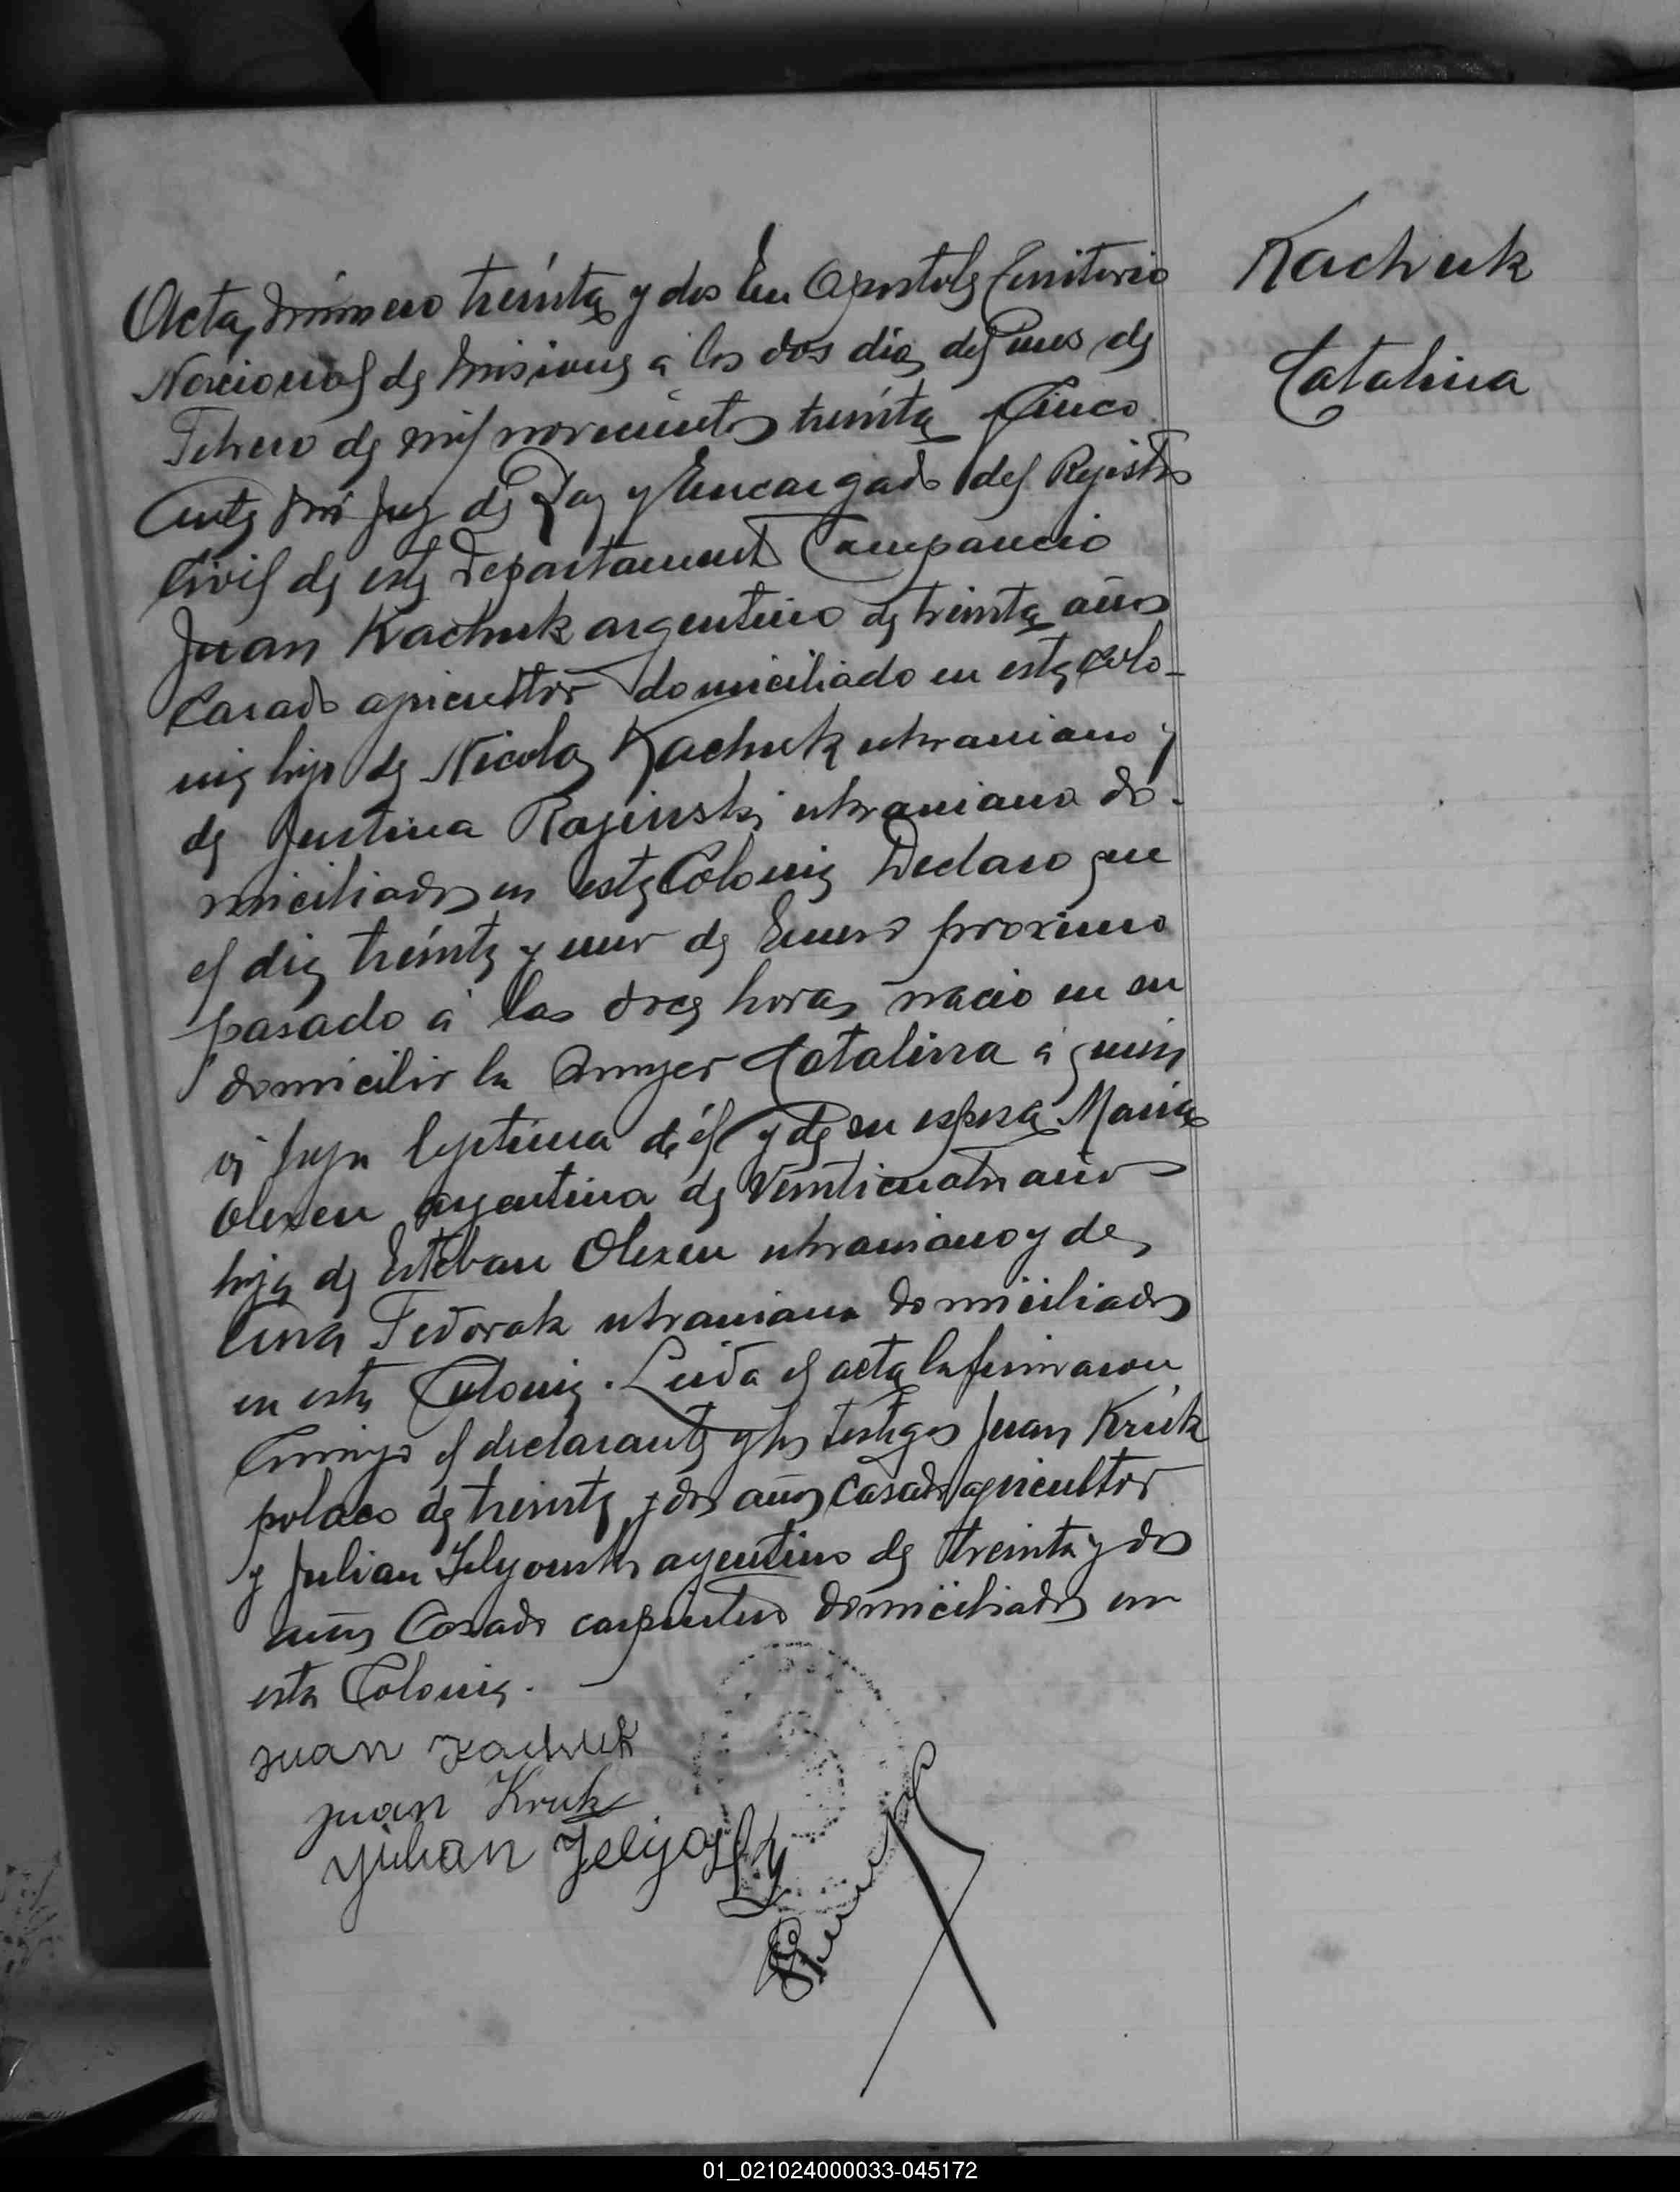 Kachuk
Catalina
Acta número treinta y dos En Apostoles Territorio
Nacional de Misiones a los dos dias del mes de
Febrero de mil novecientos treinta y Cinco
Ante mi Juez de Paz y Encargado del Registro
Civil de este Departamento Compareció
Juan Kachuk argentino de treinta años
Casado agricultor domiciliado en esta Colo-
nia hijo de Nicolas Kachuk ukraniano y
de Justina Rajinski ukraniana do-
miciliados en esta Colonia Declaro que
el dia treinta y uno de Enero proximo
pasado á las doce horas nacio en su
domicilio la mujer Catalina á quien
vi hija legitima de él y de su esposa Maria
Olexen argentina de Veinticuatro años
hija de Esteban Olexen ukraniano y de
Ana Fedorak ukraniana domiciliados
en esta Colonia. Leida el acta la firmaron
Conmigo el declarante y los testigos Juan Kruk
polaco de treinta y dos años Casado agricultor
y Julian argentino de treinta y dos
años Casado carpintero domiciliados en
esta Colonia.
Juan Kachuk
Juan Kruk
Julian
01_021024000033-045172